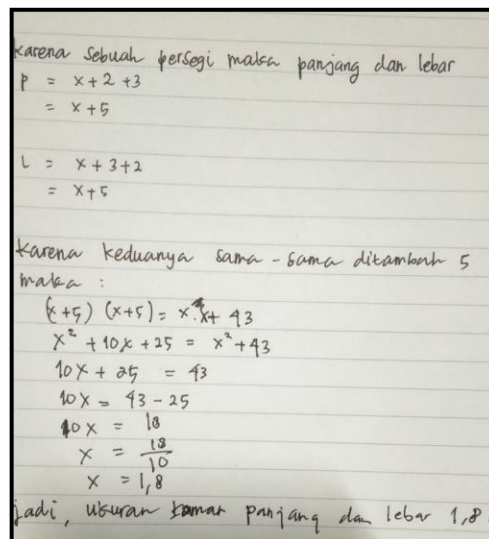 karena sebuah persegi maka panjang dan lebar
P = x+2+3
= x+5
L = x+3+2
= x+5
karena keduanya sama-sama ditambah 5
maka :
(x+5) (x+5) = x.x+ 43
x² + 10x + 25 = x² + 43
10x + 25 = 43
10x = 43 - 25
10x = 18
x = 18/10
x = 1,8
jadi, ukuran kamar panjang dan lebar 1,8